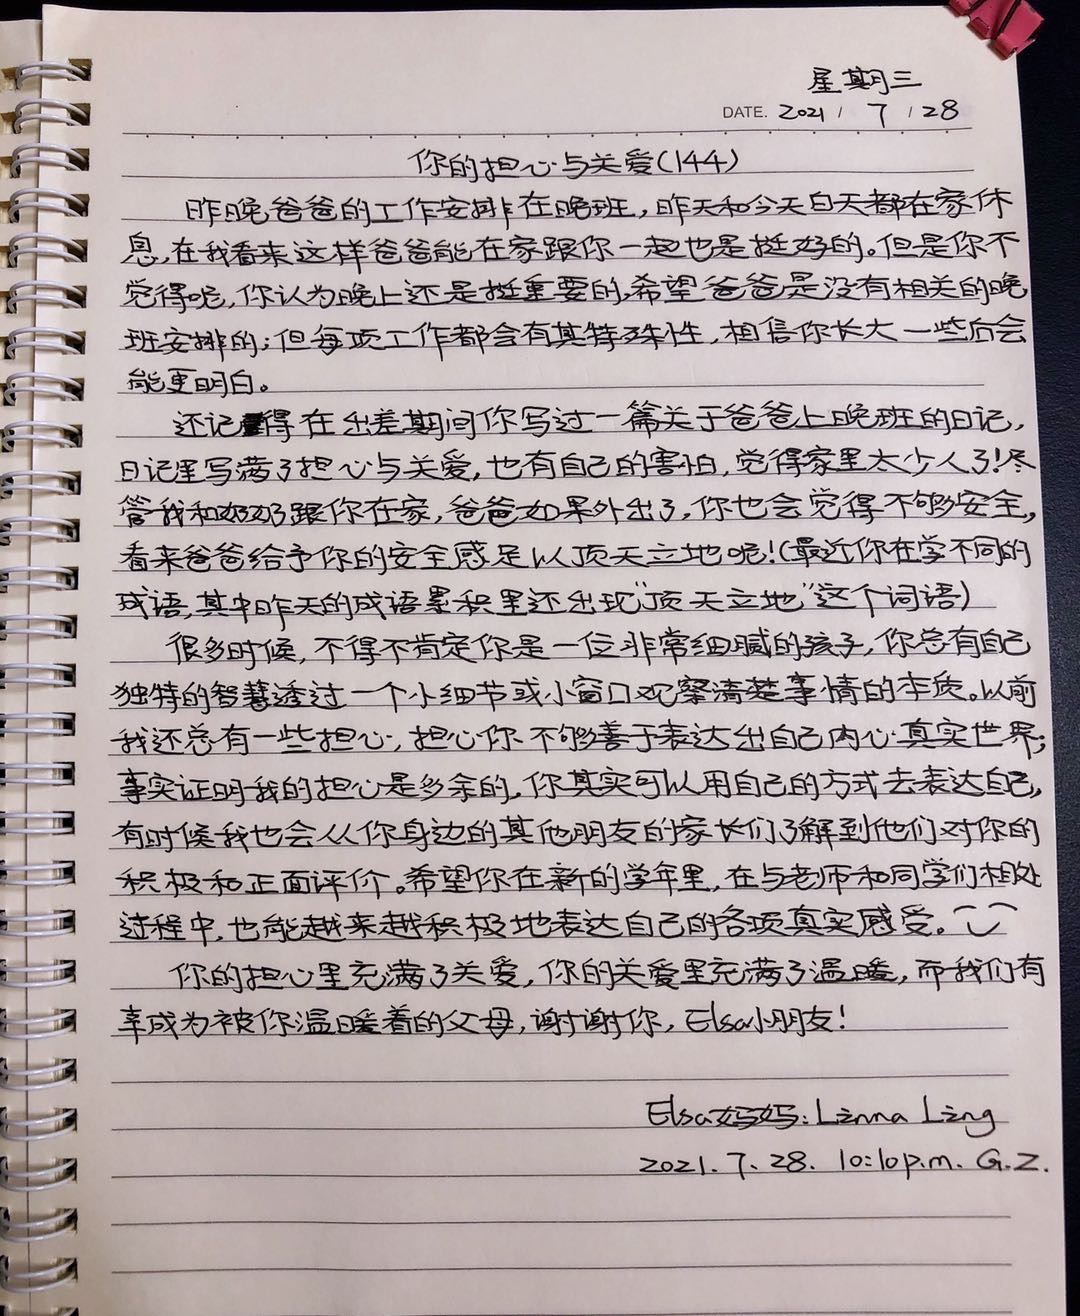 星期三
DATE. 2021 / 7 / 28
你的担心与关爱(144)
昨晚爸爸的工作安排在晚班,昨天和今天白天都在家休
息,在我看来这样爸爸能在家跟你一起也是挺好的。但是你不
觉得呢,你认为晚上还是挺重要的,希望爸爸是没有相关的晚
班安排的;但每项工作都会有其特殊性,相信你长大一些后会
能更明白。
还记得在出差期间你写过一篇关于爸爸上晚班的日记,
日记里写满了担心与关爱,也有自己的害怕,觉得家里太少人了!尽
管我和奶奶跟你在家,爸爸如果外出了,你也会觉得不够安全,
看来爸爸给予你的安全感足以顶天立地呢!(最近你在学不同的
成语,其中昨天的成语累积里还出现“顶天立地”这个词语)
很多时候,不得不肯定你是一位非常细腻的孩子,你总有自己
独特的智慧透过一个小细节或小窗口观察清楚事情的本质。以前
我还总有一些担心,担心你不够善于表达出自己内心真实世界;
事实证明我的担心是多余的,你其实可以用自己的方式去表达自己,
有时候我也会从你身边的其他朋友的家长们了解到他们对你的
积极和正面评价。希望你在新的学年里,在与老师和同学们相处
过程中,也能越来越积极地表达自己的各项真实感受。
你的担心里充满了关爱,你的关爱里充满了温暖,而我们有
幸成为被你温暖着的父母,谢谢你,Elsa小朋友!
Elsa妈妈:Linna Ling
2021.7.28. 10:10p.m. G.Z.